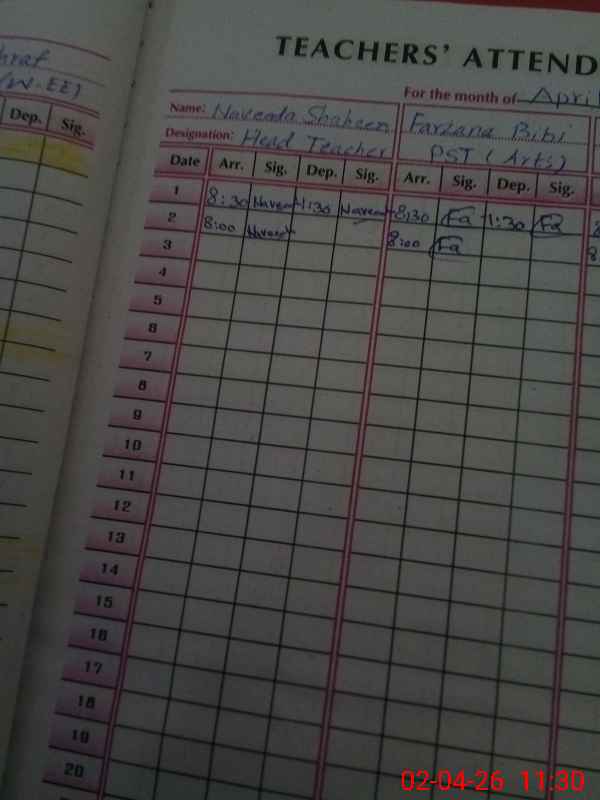 hraf
(W-EE)
Dep. Sig.
TEACHERS' ATTEND
For the month of April
Name: Naveeda Shaheen Farzana Bibi
Designation: Head Teacher PST (Arts)
Date Arr. Sig. Dep. Sig. Arr. Sig. Dep. Sig.
1 8:30 Naveed 1:30 Naveed 8:30 Fa 1:30 Fa 8
2 8:00 Naveed 8:00 Fa 8
3
4
5
6
7
8
9
10
11
12
13
14
15
16
17
18
19
20
02-04-26 11:30